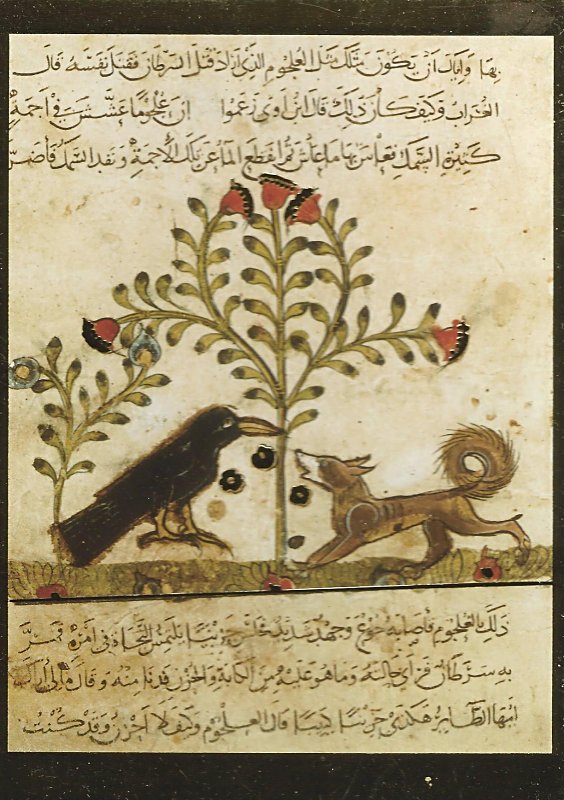 بها وإياك أن يكون مثلك مثل العلجوم الذي أراد قتل السرطان فقتل نفسه قال
الغراب وكيف كان ذلك قال ابن آوى زعموا أن علجوما عشش في أجمة
كثيرة السمك فعاش بها ما عاش ثم انقطع الماء عن تلك الأجمة ونفد السمك
ذلك بالعلجوم فأصابه جوع وجهد شديد فجلس حزينا يلتمس النجاة في أمره فمر
به سرطان فرأى حالته وما هو عليه من الكآبة والحزن فدنا منه وقال ما لي أراك
أيها الطائر هكذى حزينا كئيبا قال العلجوم وكيف لا أحزن وقد كنت